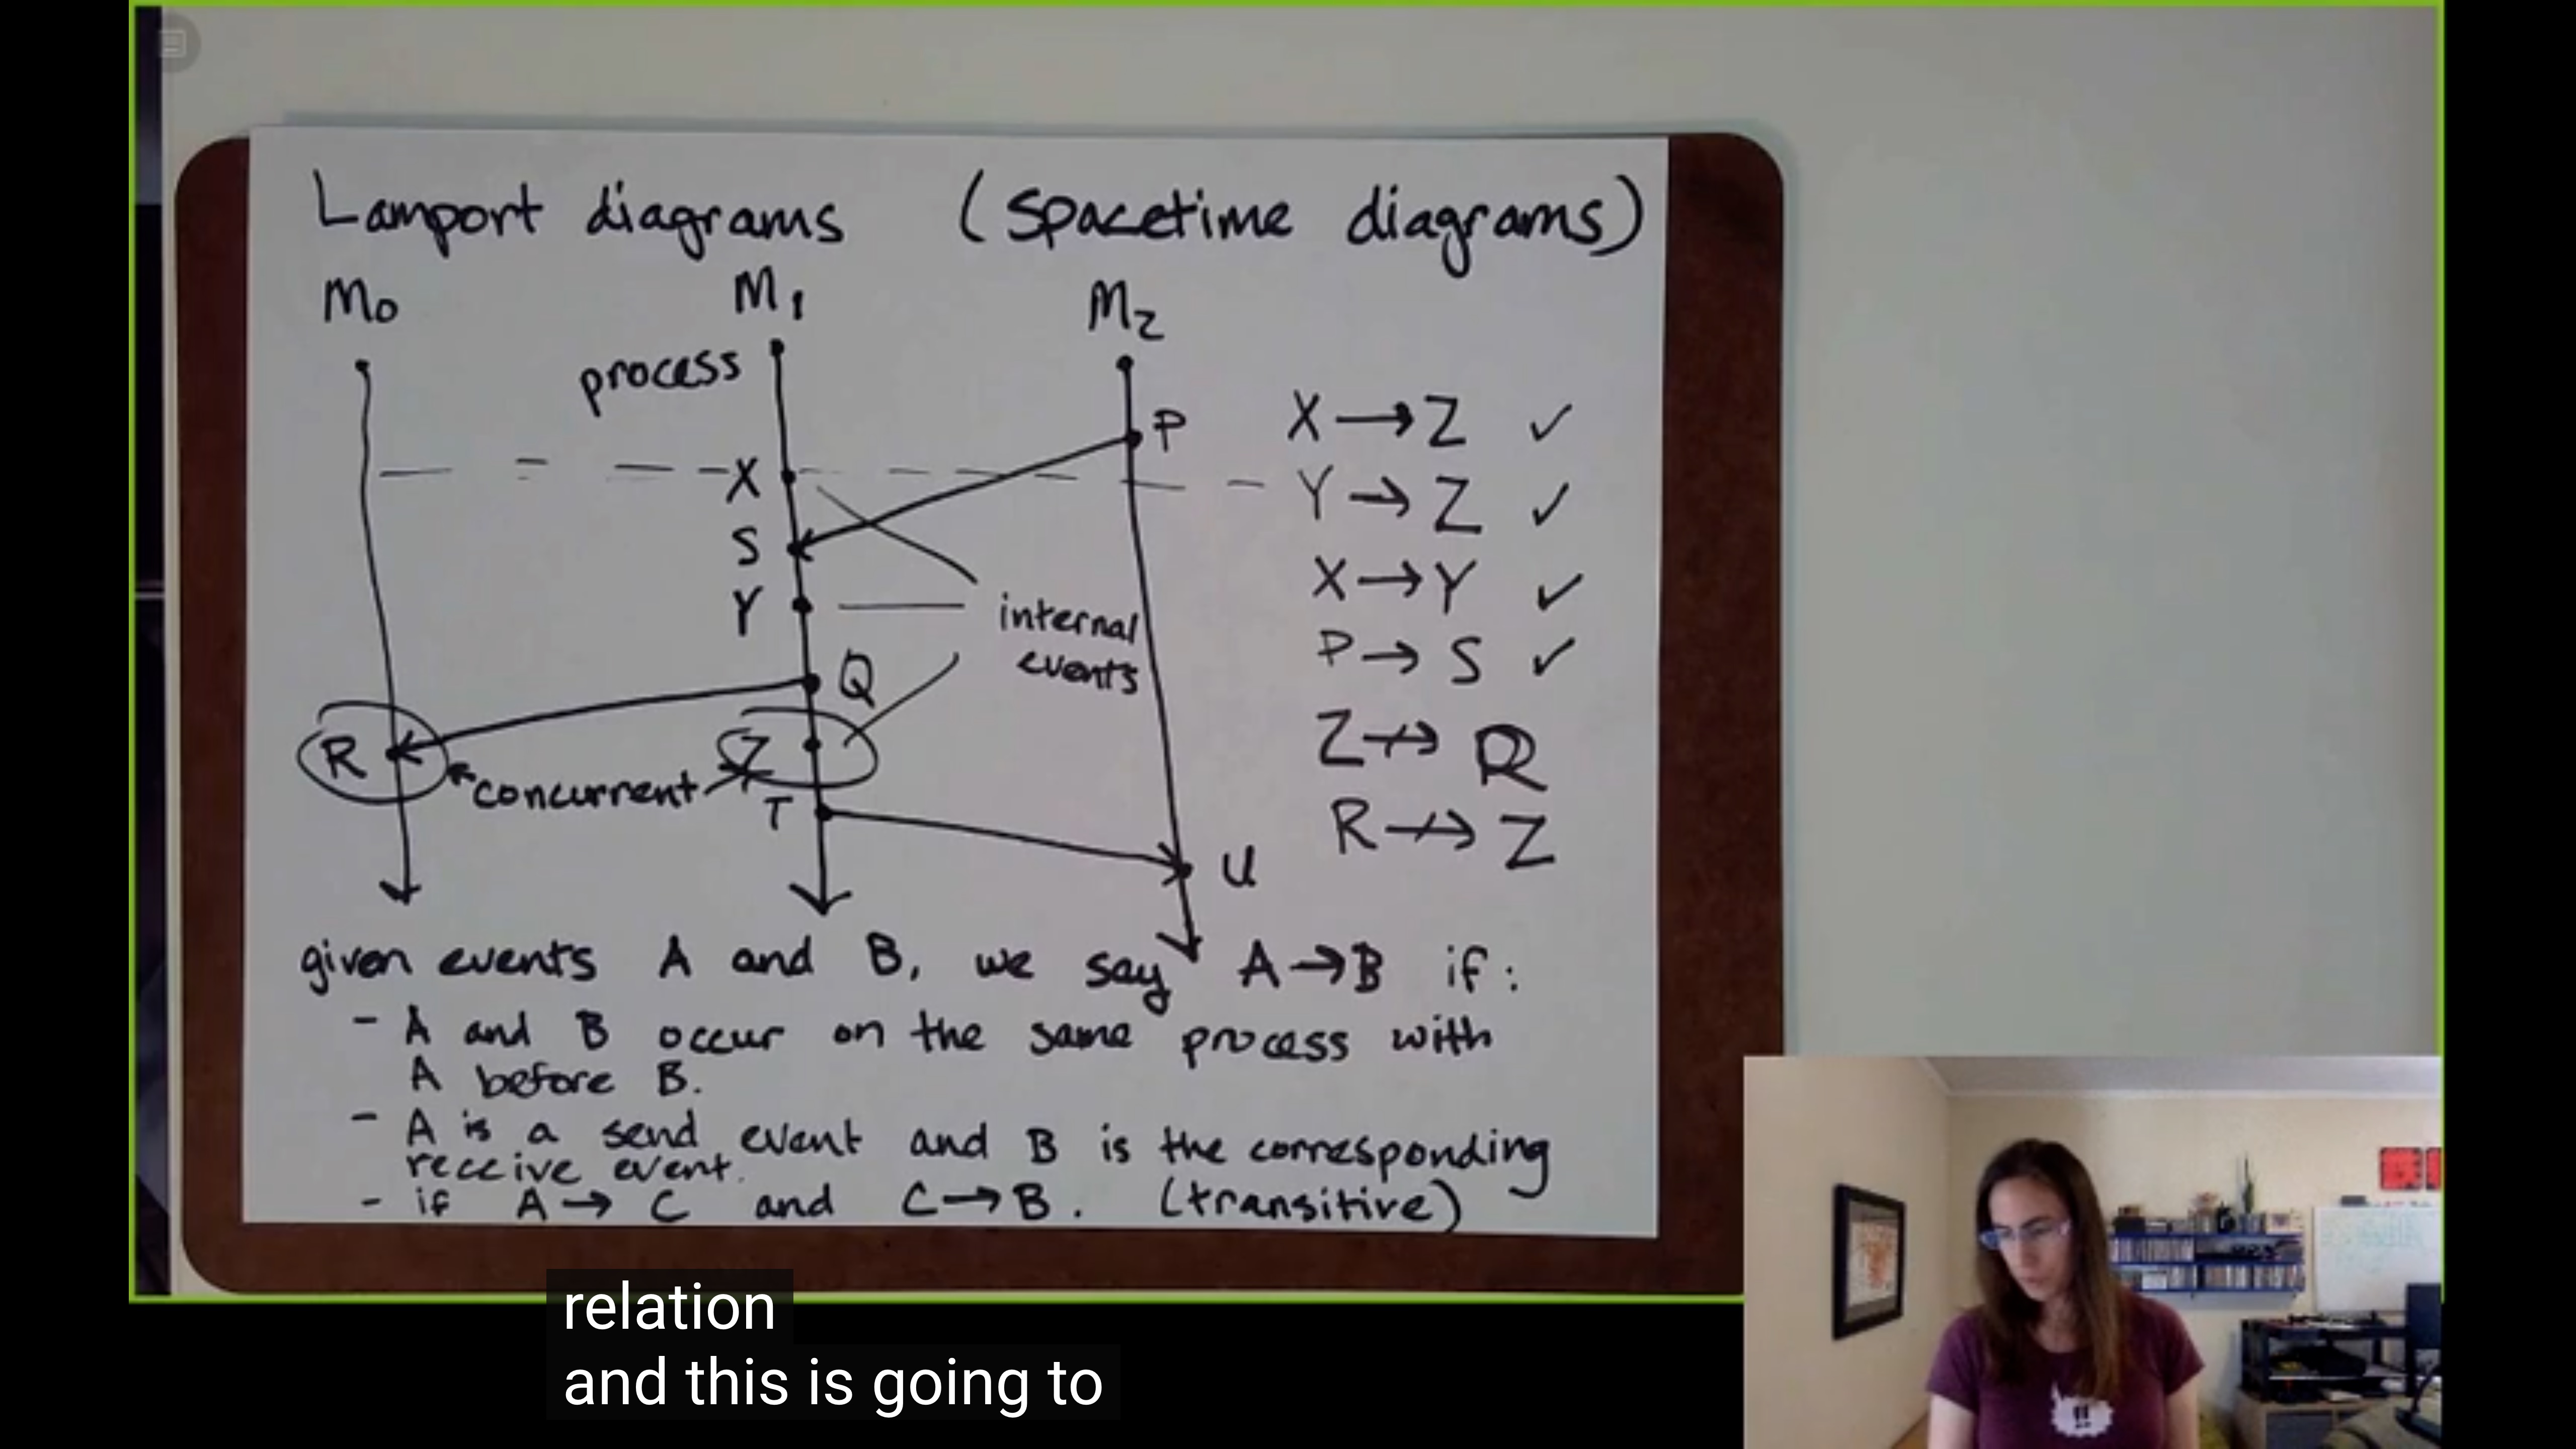 Lamport diagrams (spacetime diagrams)
M0 M1 M2
process
P
X
S
Y
internal
events
Q
R
Z
concurrent
T
U
X → Z ✓
Y → Z ✓
X → Y ✓
P → S ✓
Z ↛ R
R ↛ Z
given events A and B, we say A → B if:
- A and B occur on the same process with
A before B.
- A is a send event and B is the corresponding
receive event.
- if A → C and C → B. (transitive)
!!
relation
and this is going to